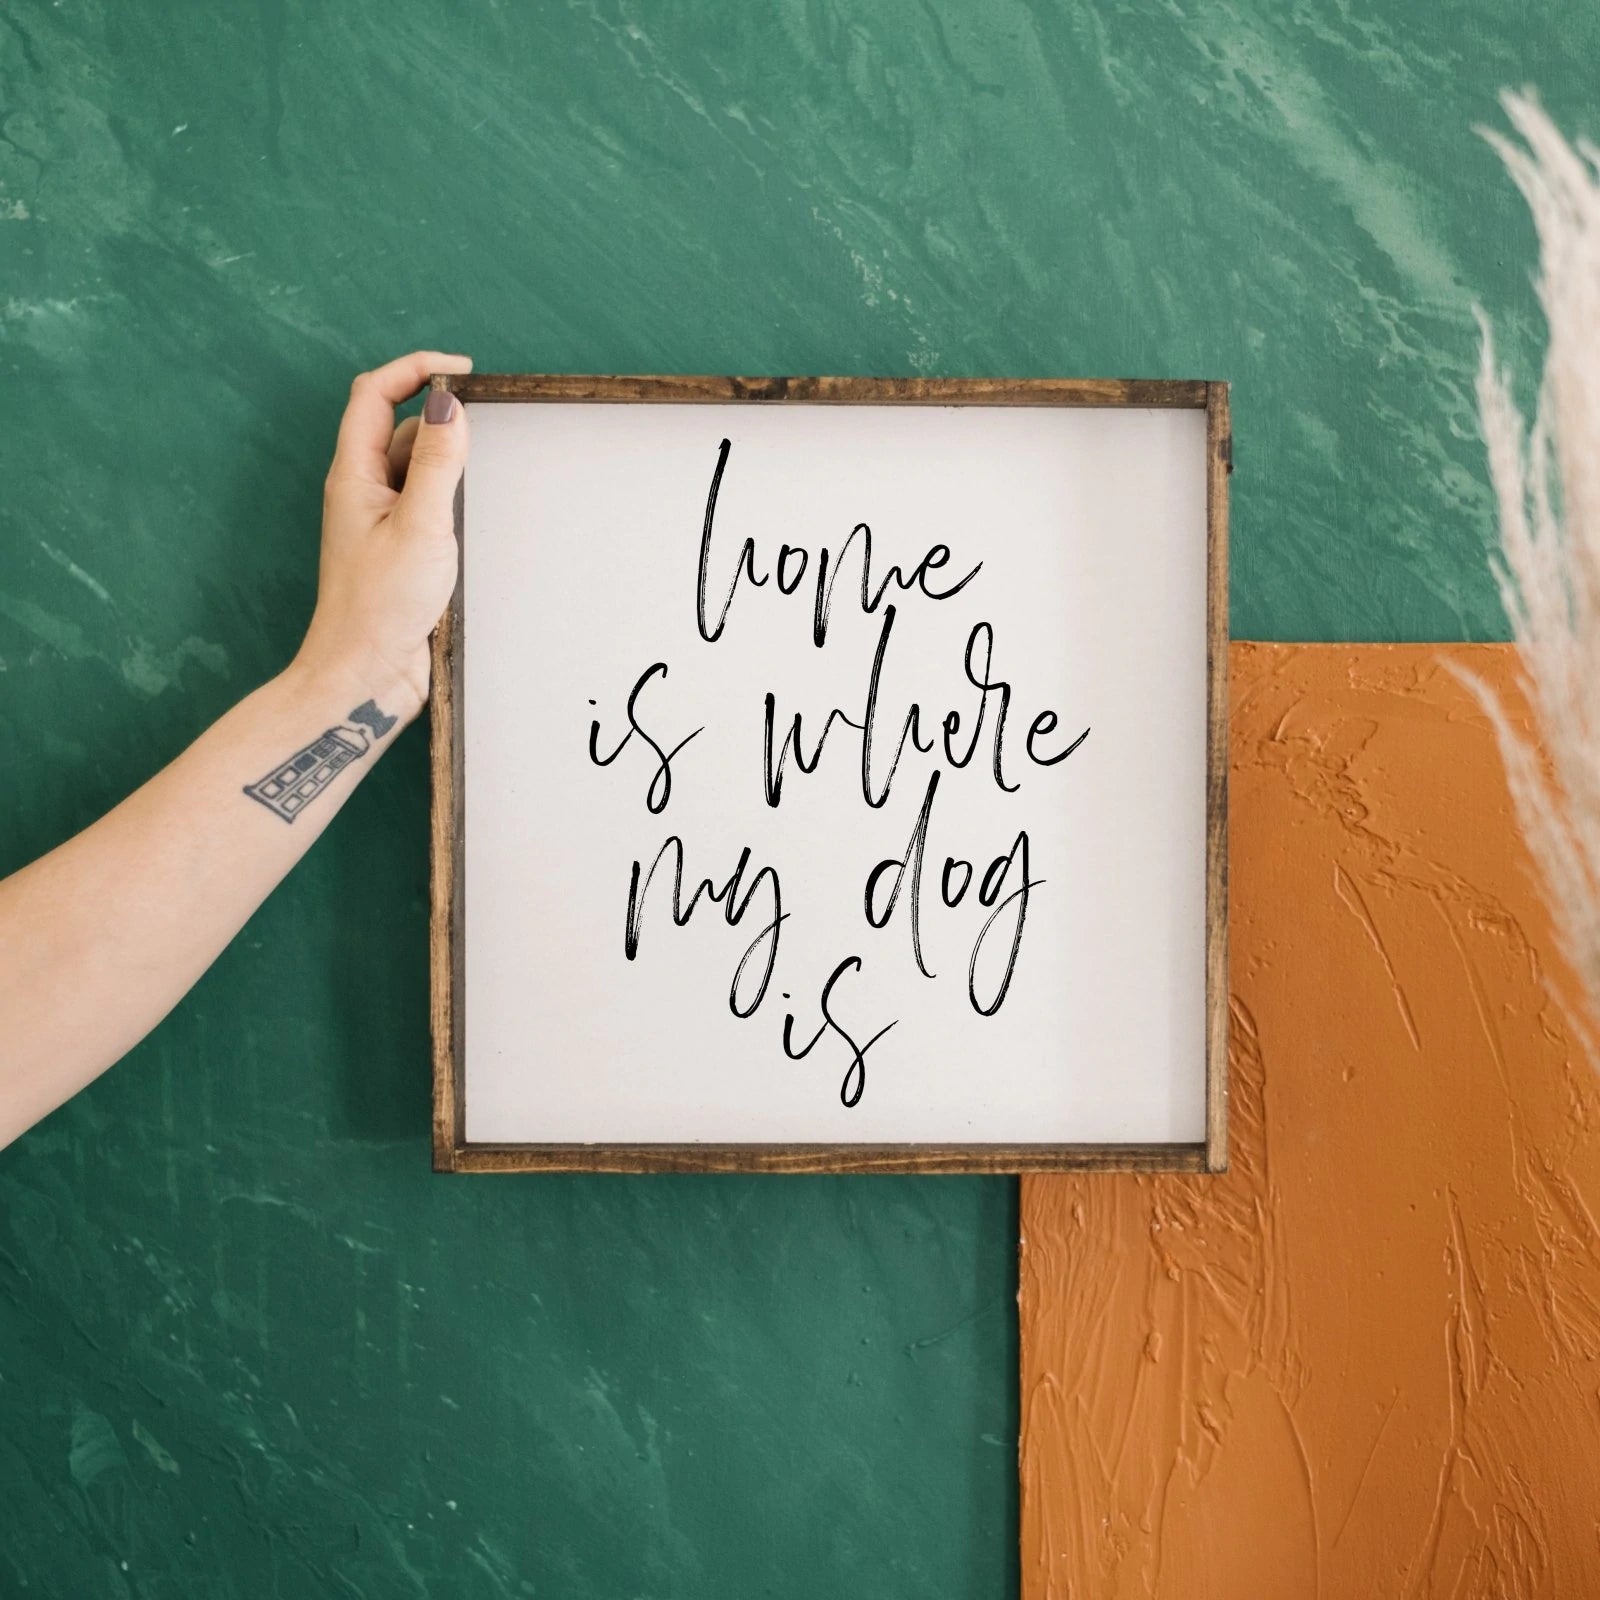 home
is where
my dog
is